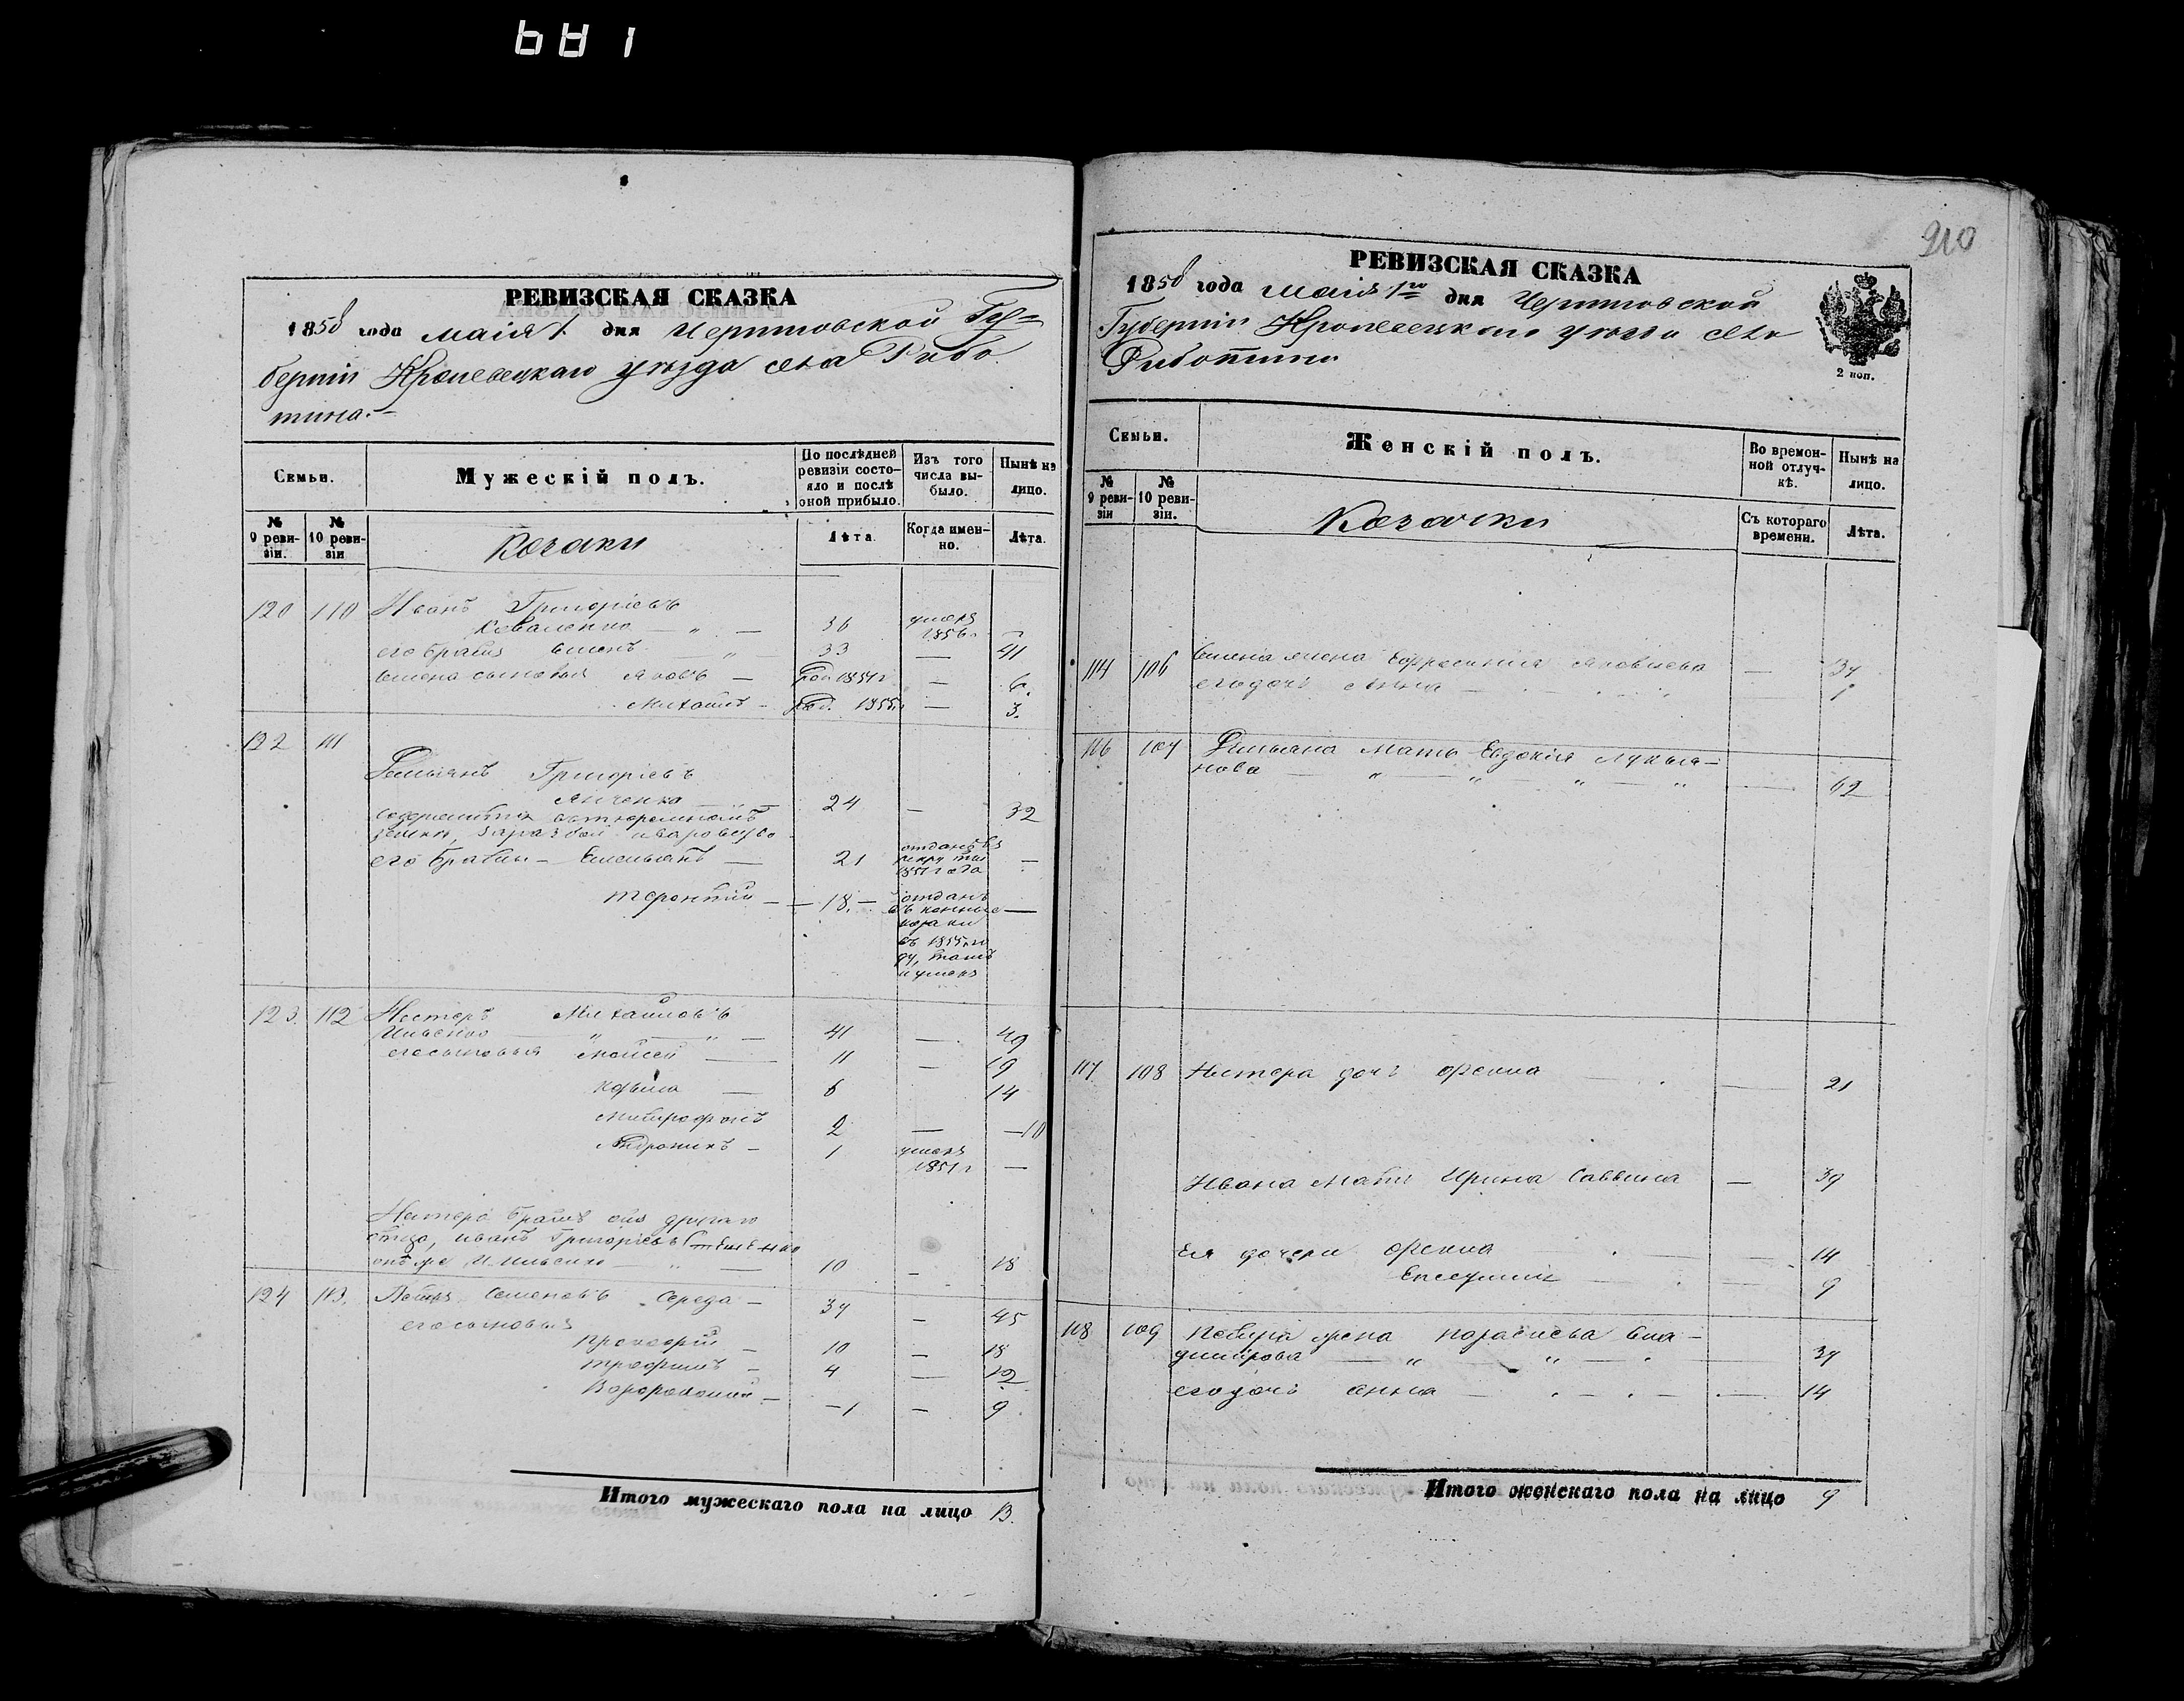 681
РЕВИЗСКАЯ СКАЗКА
1858 года маія 1. дня Черниговской Гу=
берніи Кролевецкаго уѣзда села Рибо
тина.–
Семьи.
Мужескій полъ.
По послѣдней ревизіи состояло и послѣ оной прибыло.
Изъ того числа выбыло.
Нынѣ на лицо.
№ 9 ревизіи.
№ 10 ревизіи
Козаки
Лѣта.
Когда именно.
Лѣта.
120 110 Иванъ Григорьевъ
Коваленко — „ — 36 умеръ 1856 г. —
его братъ Семенъ — „ — 33 — 41
Семена сыновья Яковъ — род. 1851 г — 6.
Михаилъ – род. 1855 г — 3.
122 111
Демьянъ Григорьевъ
24 — 32
содержится въ тюремномъ
его братья – Емельянъ — 21 отданъ въ рекруты 1851 года —
Терентій — — 18. — отданъ въ конные козаки въ 1855 году, тамъ и умеръ —
123. 112 Нестеръ Михайловъ
Ильенко — „ — „ — 41 — 49
его сыновья Моисей — 11 — 19
Козьма — 6 14
Митрофанъ 2 — —10
Андроникъ – 1 умеръ 1851 г —
Нестера братъ отъ другаго
отца, Иванъ Григорьевъ
онъ же и Ильенко — „ — 10 — 18
124 113. Петръ Семеновъ Середа – 37 — 45
его сыновья
Прокофій – 10 — 18
Трофимъ – 4 — 12
– —1 — 9
Итого мужескаго пола на лицо 13.
210
РЕВИЗСКАЯ СКАЗКА
1858 года маія 1го дня Черниговской
Губерніи Кролевецкаго уѣзда села
Риботина
2 коп.
Семьи.
Женскій полъ.
Во временной отлучкѣ.
Нынѣ на лицо.
№ 9 ревизіи
№ 10 ревизіи.
Козачки
Съ котораго времени.
Лѣта.
114 106 Семена жена Ефросинія Яковлева — 37
его дочь Анна — 1
116 107 Демьяна мать Евдокія Лукья–
нова — „ — „ — „ — „ — 62
117 108 Нестера дочь Фекла — 21
Ивана мать Ирина Саввина — 39
Ея дочери Фекла — 14
9
118 109 Петра жена Параскева Вла–
димірова — „ — „ — 37
его дочь Анна — 14
Итого женскаго пола на лицо 9